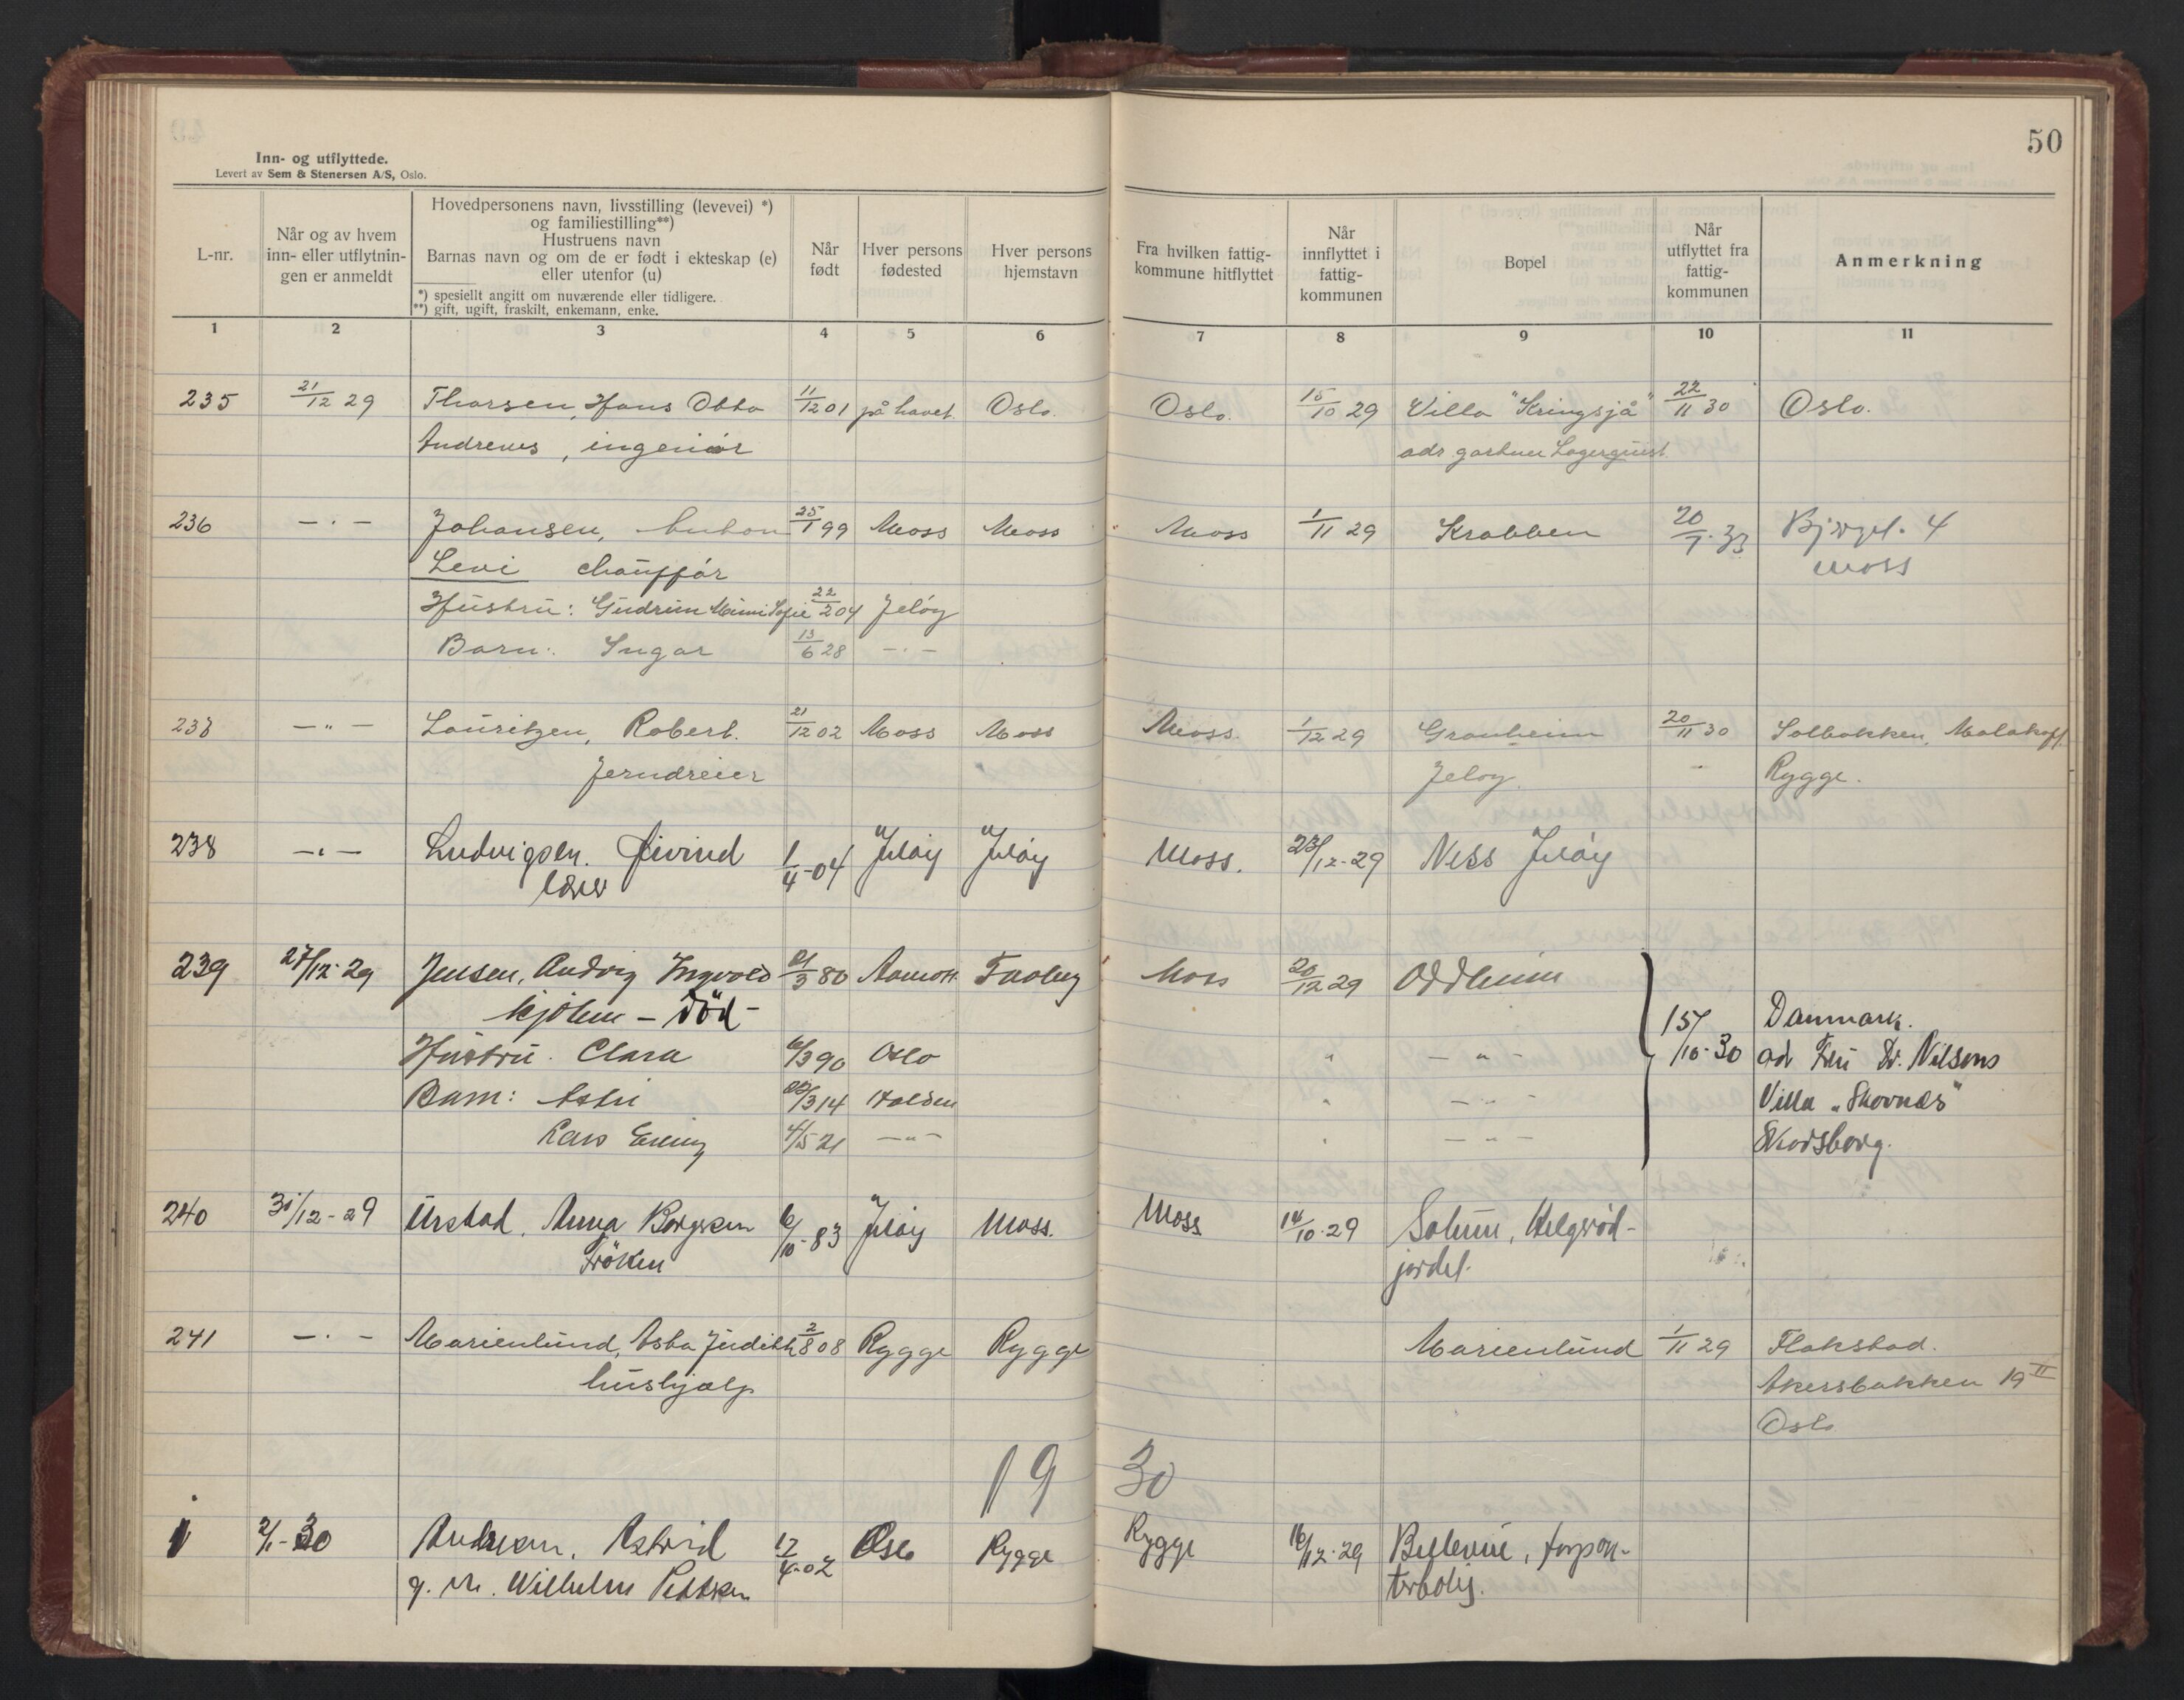 50
Inn- og utflyttede.
Levert av Sem & Stenersen A/S, Oslo.
L-nr.
Når og av hvem inn- eller utflytnin- gen er anmeldt
Hovedpersonens navn, livsstilling (levevei) *)
og familiestilling**)
Hustruens navn
Barnas navn og om de er født i ekteskap (e)
eller utenfor (u)
*) spesiellt angitt om nuværende eller tidligere.
**) gift, ugift, fraskilt, enkemann, enke.
Når født
Hver persons fødested
Hver persons hjemstavn
Fra hvilken fattig- kommune hitflyttet
Når innflyttet i fattig- kommunen
Bopel
Når utflyttet fra fattig- kommunen
Anmerkning
1 2 3 4 5 6 7 8 9 10 11
235 21/12 29 Thorsen, Hans Otto 11/12 01 på havet. Oslo. Oslo. 15/10 29 Villa "Kringsjå" 22/11 30 Oslo.
Andreas, ingeniør adr. gartner Lagerquist
236 — · — Johansen, Anton 25/1 99 Moss Moss Moss 1/11 29 Krabben 20/7. 33 4
Levi chauffør Moss
Hustru: Gudrun Mimi Sofie 22/2 04 Jeløy
Barn: Ingar 13/6 28 — · —
237 — " — Lauritzen, Robert. 21/12 02 Moss Moss Moss. 1/12 29 Granheim 20/11 30 Solbakken, Malakoff.
Jerndreier Jeløy. Rygge.
238 — · — Ludvigsen. Øivind 1/4-04 Jeløy Jeløy Moss. 23/12-29 Ness Jeløy
lærer
239 27/12-29 Jensen, Ingvold 80 Moss 20/12 29 Oddheim
— Död —
Hustru. Clara 6/3 90 Oslo " — " — 15/10-30 Danmark.
Barn: 14 Halden " — " — ad Fru Dr. Nilsens
Lars Erling 4/5 21 — " — " — " — Villa "Skovnæs"
Skodsborg.
240 31/12-29 Urstad, Anna Borgersen 6/10-83 Jeløy Moss. Moss 14/10-29 Solum, Helgerød-
Fröken jordet.
241 — · — Marienlund, Asta Judith 2/8 08 Rygge Rygge Marienlund 1/11 29 Flakstad.
hushjælp Akersbakken 19 II
Oslo
19 30
1 2/1-30 Andresen, Astrid 17/4-02 Oslo Rygge Rygge 16/12-29 Bellevue, forpak-
g. m. Wilhelm Pettersen terbolig.